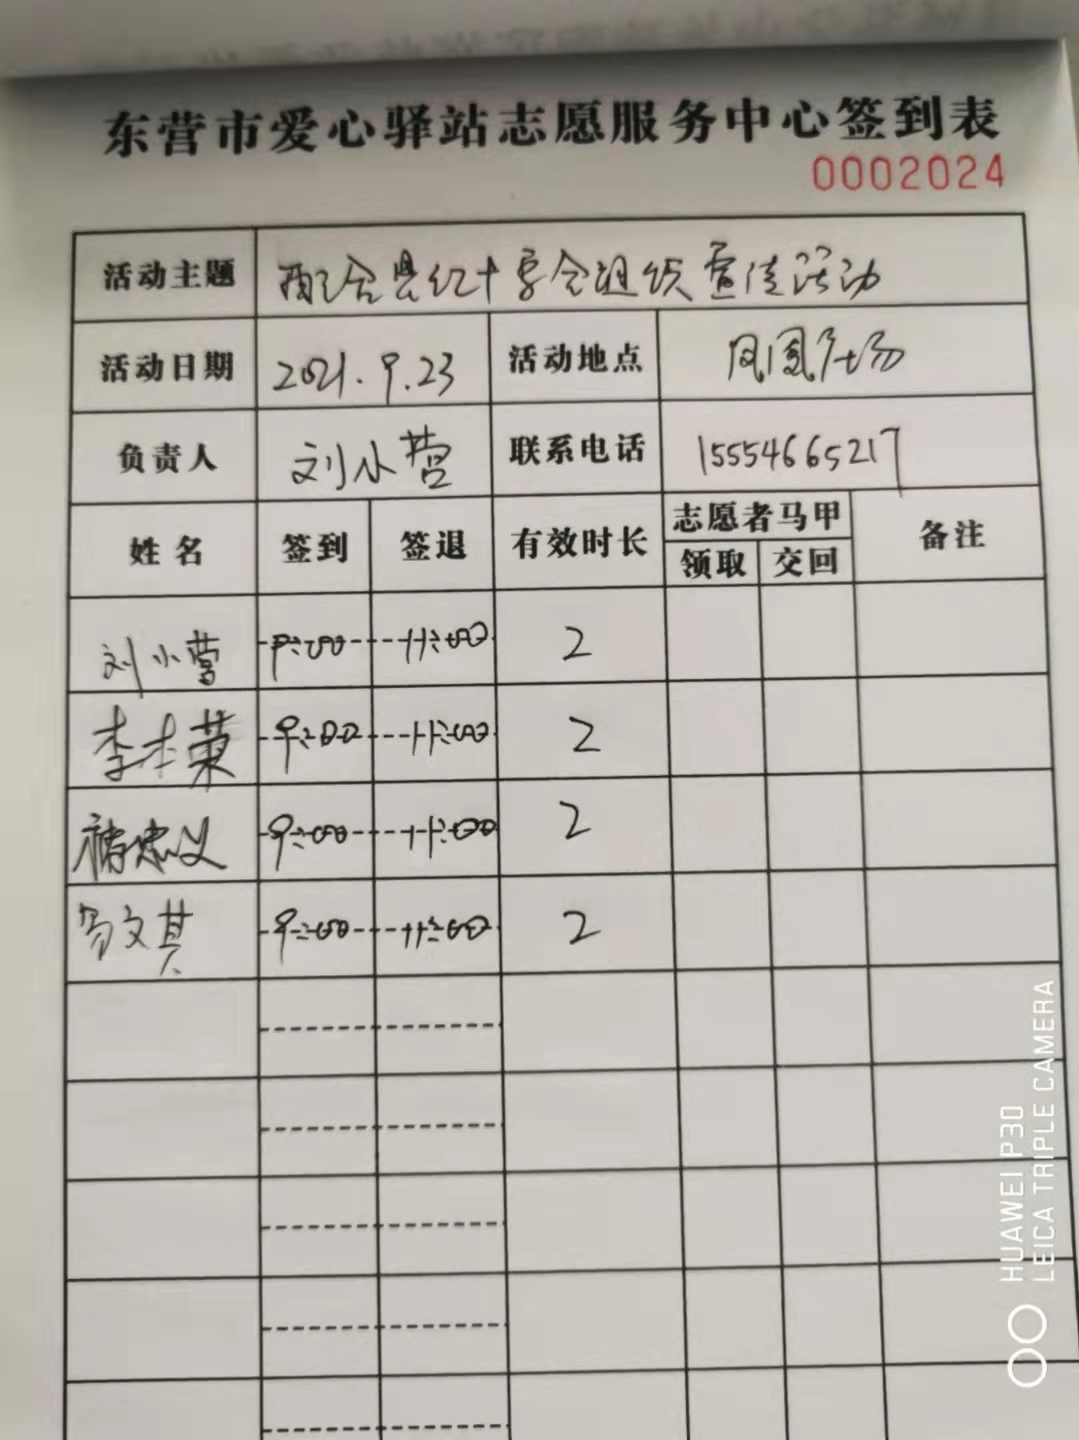 东营市爱心驿站志愿服务中心签到表
0002024
活动主题 配合县红十字会组织宣传活动
活动日期 2021.9.23 活动地点 凤凰广场
负责人 刘小营 联系电话 15554665217
姓名 签到 签退 有效时长 志愿者马甲 备注
领取 交回
刘小营 9:00 11:00 2
李本荣 9:00 11:00 2
忠义 9:00 11:00 2
文其 9:00 11:00 2
HUAWEI P30
LEICA TRIPLE CAMERA